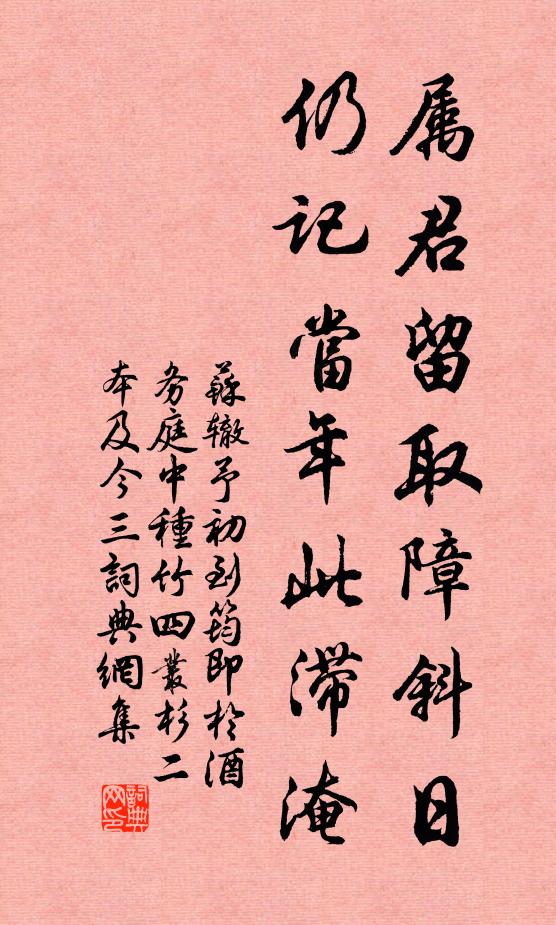 属君留取障斜日
仍记當年此滞淹
蘇辙予初到筠即於酒
务庭中種竹四叢杉二
本及今三詞典網集
詞典
网印